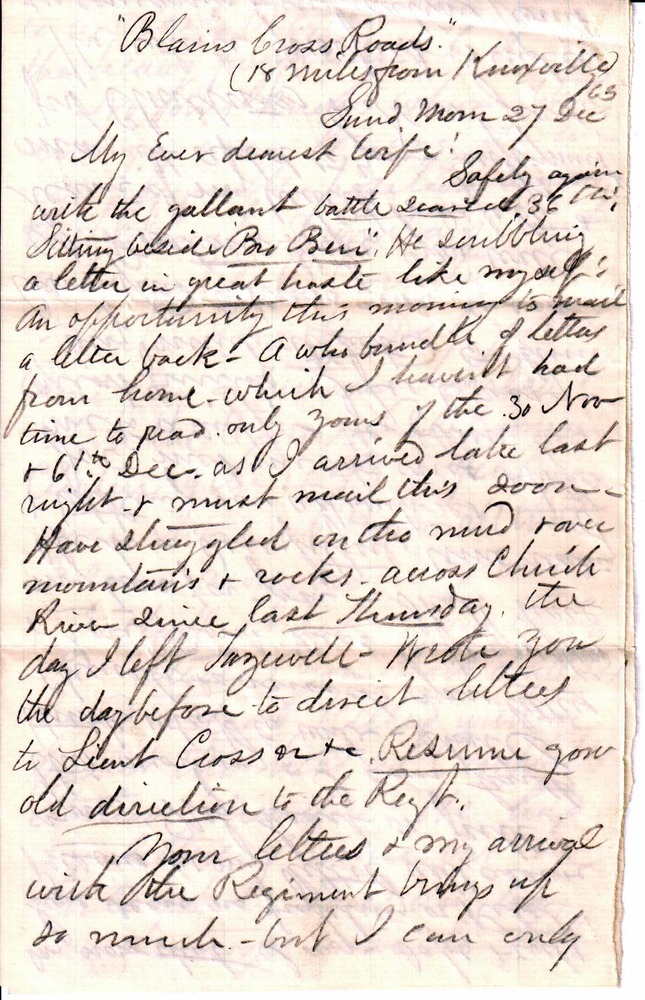 "Blains Cross Roads."
(18 miles from Knoxville)
/63
Sund Morn 27 Dec
My Ever dearest Wife!
Safely again
with the gallant battle scarred 36th!
Sitting beside "Bro Ben". He scribbling
a letter in great haste like myself!
An opportunity this morning to mail
a letter back - A who bundle of letters
from home - which I havent had
time to read. only yours of the 30 Nov
& 6th Dec. as I arrived late last
night - & must mail this soon -
Have struggled on tho mud & over
mountains & rocks - across Clinch
River since last Thursday. the
day I left Tazewell - Wrote you
the day before to direct letters
to Lieut Cross &c. Resume your
old direction to the Regt.
Your letters & my arrival
with the Regiment brings up
so much - but I can only